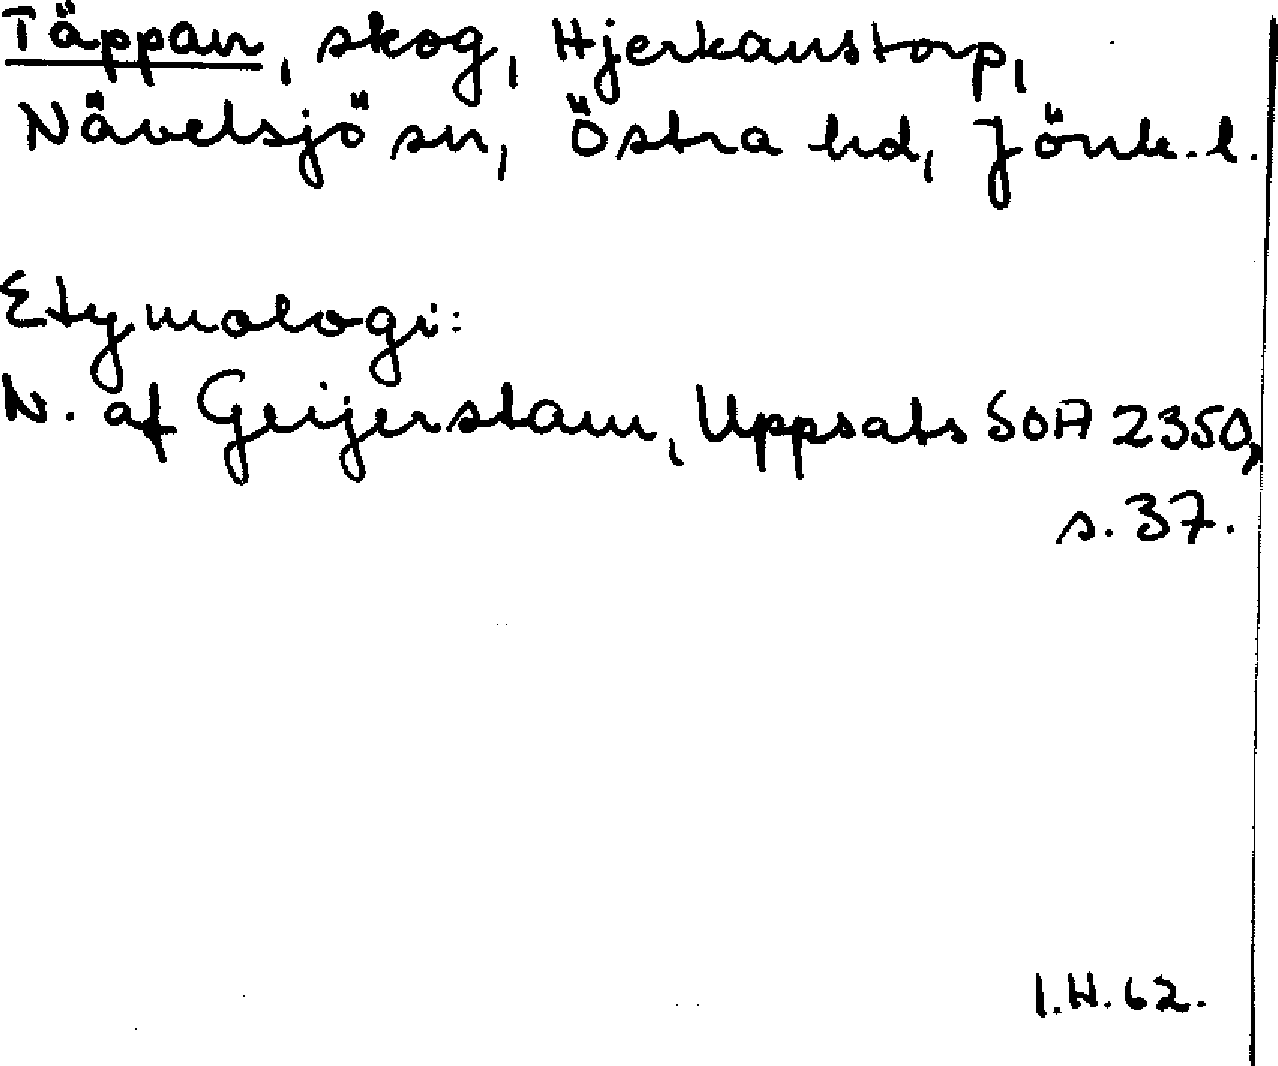 Täppan, skog, Hjerkanstorp,
Nävelsjö sn, Östra hd, Jönk. l.
Etymologi:
N. af Geijerstam, Uppsats SOA 2350,
s. 37.
I.H. 62.